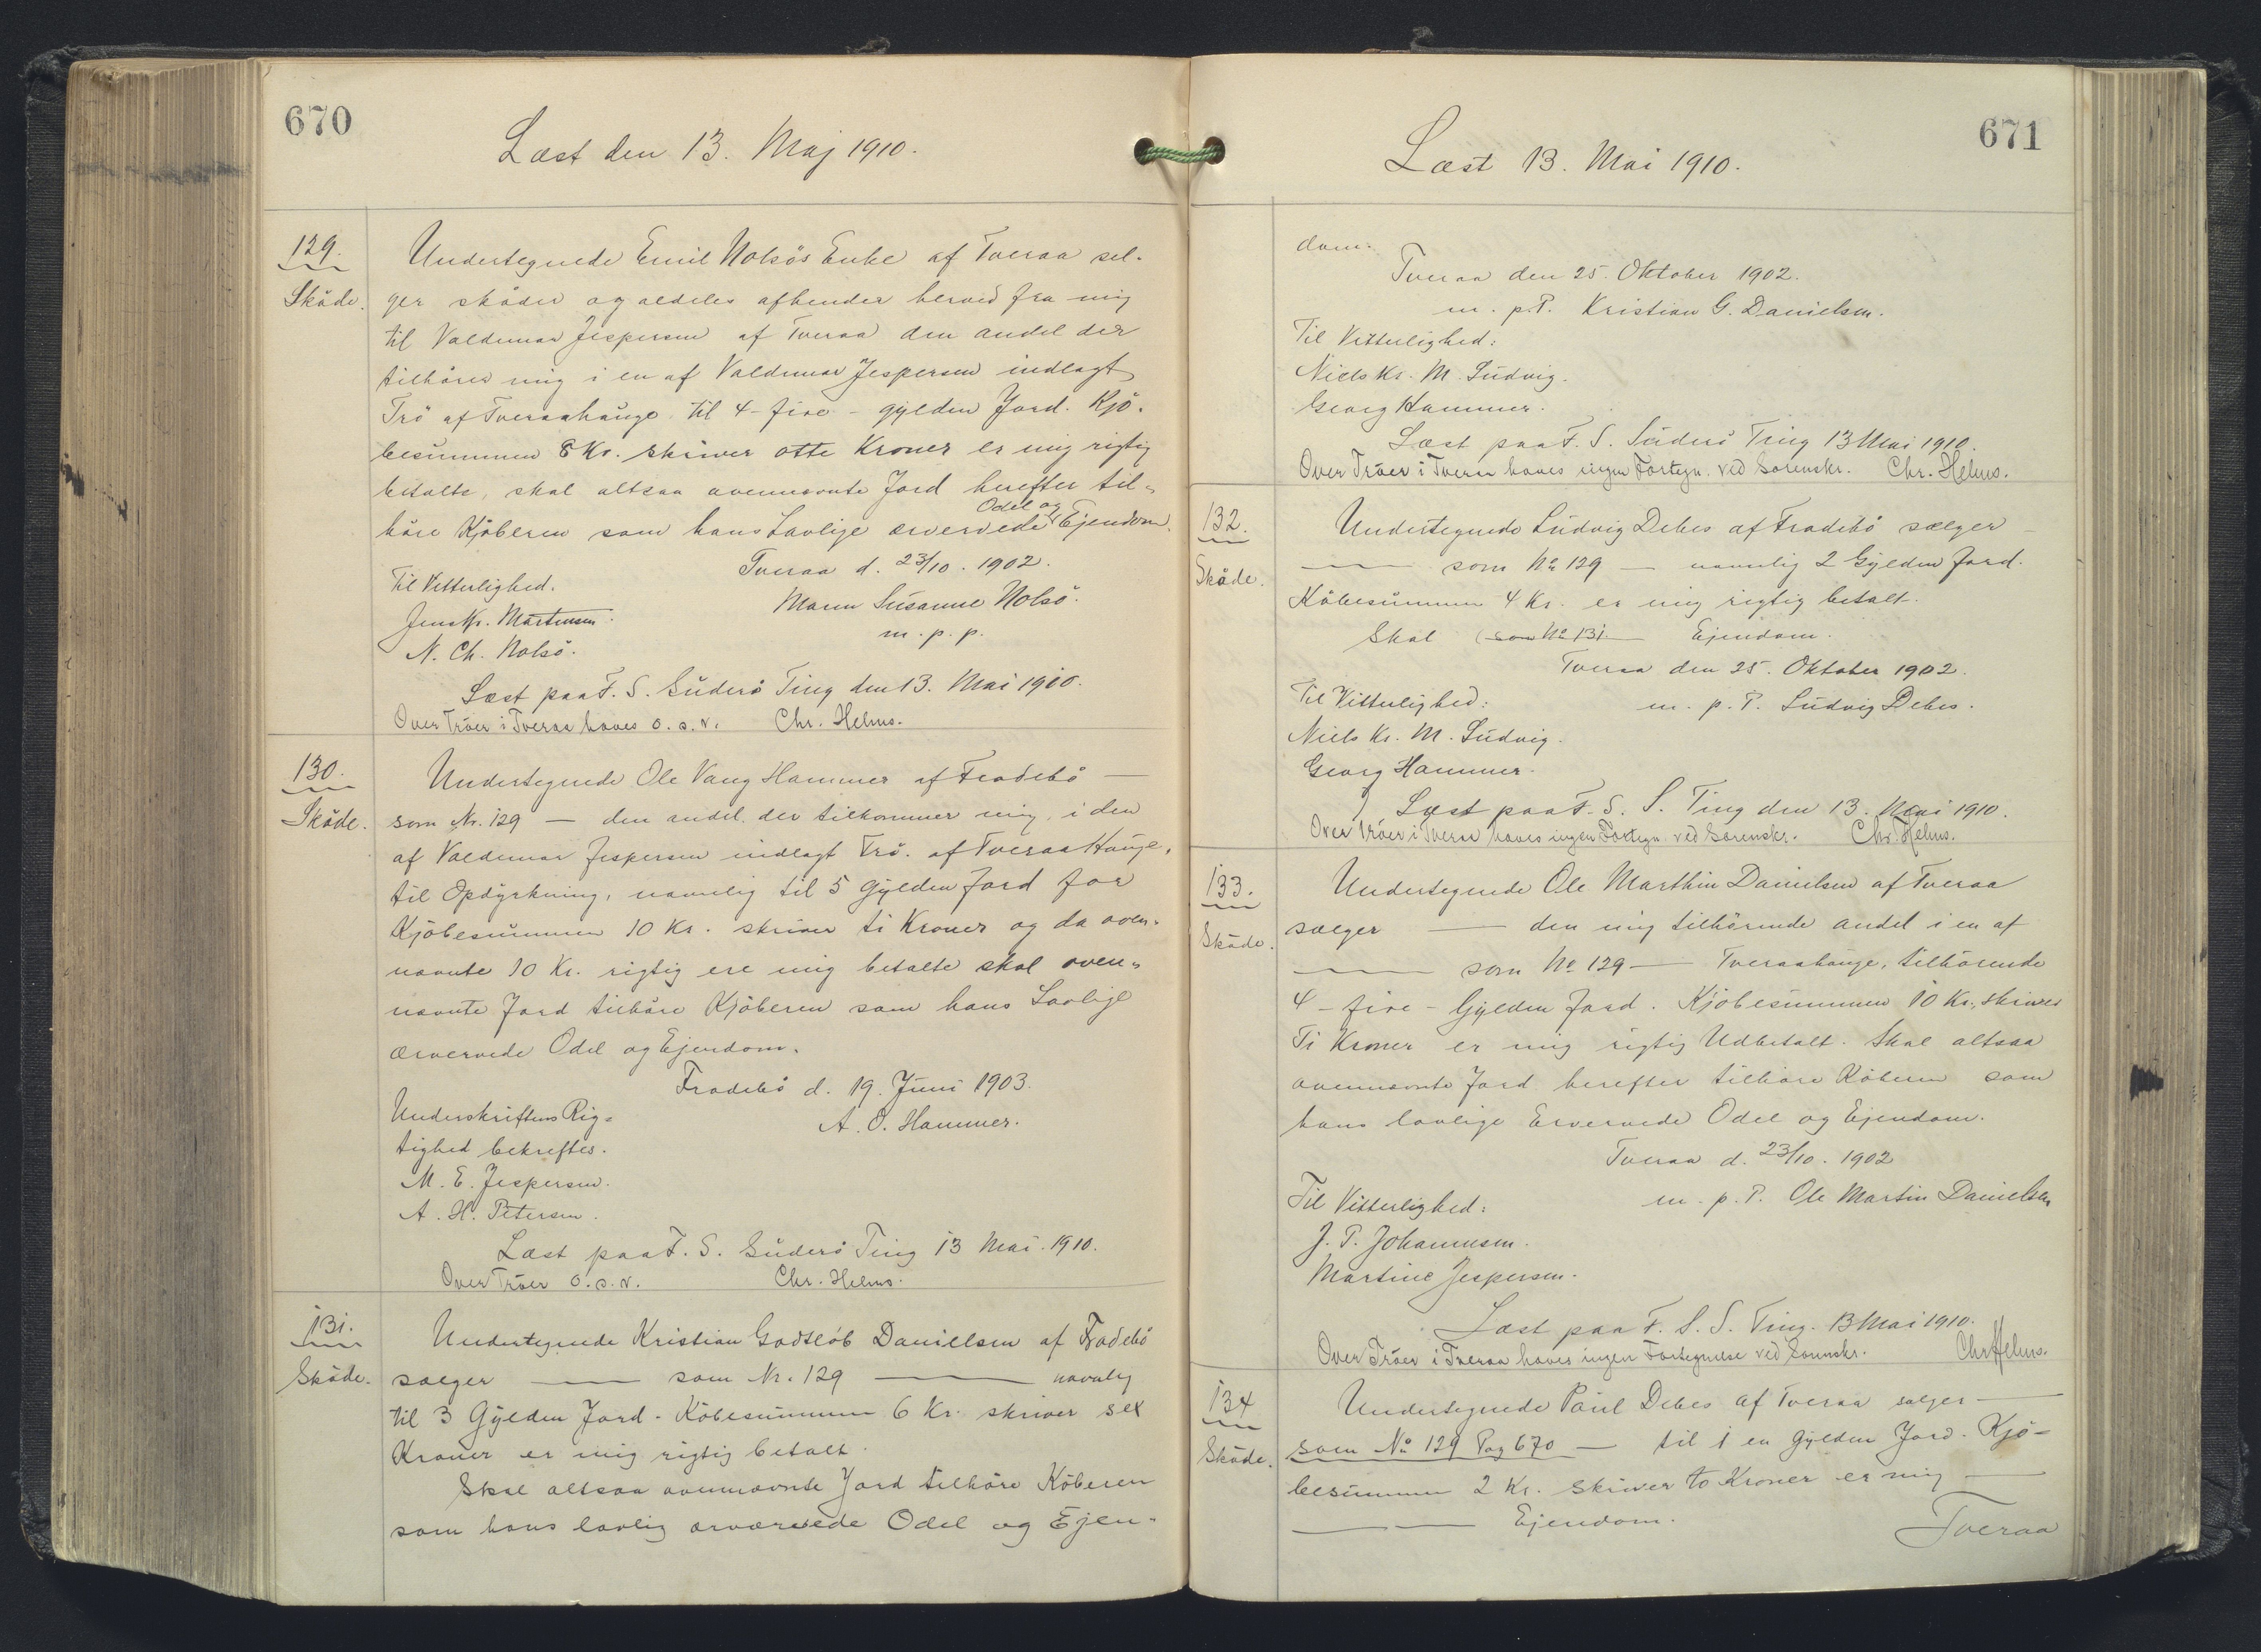 670
Læst den 13. Maj 1910.
129.
Skøde.
Undertegnede Emil Nolsøs Enke af Tveraa sel-
ger skøder og aldeles afhender herved fra mig
til Valdemar Jespersen af Tveraa den andel der
tilhører mig i en af Valdemar Jespersen indlagt
Trø af Tveraahauge til 4 - fire - gylden Jord. Kjø-
besummen 8 Kr. skriver otte Kroner er mig rigtig
betalte, skal altsaa ovennævnte Jord herefter til-
høre Kjøberen som hans Lovlige ærvervede Odel og Ejendom.
Tveraa d. 23/10. 1902.
Til Vitterlighed.
Maren Susanne Nolsø.
Jens Kr. Martensen.
m. p. p.
N. Ch. Nolsø.
Læst paa F. S. Suderø Ting den 13. Mai 1910.
Over Trøer i Tveraa haves o. s. v. Chr. Helms.
130.
Skøde.
Undertegnede Ole Vang Hammer af Frodebø —
som Nr. 129 — den andel der tilkommer mig, i den
af Valdemar Jespersen indlagt Trø. af Tveraa Hauge,
til Opdyrkning, navnlig til 5 Gylden Jord for
Kjøbesummen 10 Kr. skriver ti Kroner og da oven-
nævnte 10 Kr. rigtig ere mig betalte skal oven-
nævnte Jord tilhøre Kjøberen som hans Lovlige
ærvervede Odel og Ejendom.
Frodebø d. 19. Juni 1903.
Underskriftens Rig-
A. O. Hammer.
tighed bekreftes.
M. E. Jespersen.
A. H. Petersen.
Læst paa F. S. Suderø Ting 13 Mai 1910.
Over Trøer o. s. v. Chr. Helms.
131.
Skøde.
Undertegnede Kristian Godtløb Danielsen af Frodebø
sælger — som Nr. 129 — navnlig
til 3 Gylden Jord. Købesummen 6 Kr. skriver sex
Kroner er mig rigtig betalt.
Skal altsaa ovennævnte Jord tilhøre Køberen
som hans lovlig ærværvede Odel og Ejen-
671
Læst 13. Mai 1910.
dom.
Tveraa den 25. Oktober 1902.
m. p. P. Kristian G. Danielsen.
Til Vitterlighed:
Niels Kr. M. Ludvig.
Georg Hammer.
Læst paa F. S. Suderø Ting 13 Mai 1910.
Over Trøer i Tveraa haves ingen Fortegn. ved Sorenskr. Chr. Helms.
132.
Skøde.
Undertegnede Ludvig Debes af Frodebø sælger —
— som No 129 — navnlig 2 Gylden Jord.
Købesummen 4 Kr. er mig rigtig betalt.
Skal (som No 131 — Ejendom.
Tveraa den 25. Oktober 1902.
Til Vitterlighed:
m. p. P. Ludvig Debes.
Niels Kr. M. Ludvig.
Georg Hammer.
Læst paa F. S. S. Ting den 13. Mai 1910.
Over Trøer i Tveraa haves ingen Fortegn. ved Sorenskr. Chr. Helms.
133.
Skøde.
Undertegnede Ole Marthin Danielsen af Tveraa
sælger — den mig tilhørende andel i en af
— som No 129 — Tveraahauge, tilhørende
4 - fire - Gylden Jord. Kjøbesummen 10 Kr., skriver
Ti Kroner er mig rigtig Udbetalt. Skal altsaa
ovennævnte Jord herefter tilhøre Køberen som
hans lovlige Ervervede Odel og Ejendom.
Tveraa d. 23/10. 1902
Til Vitterlighed:
m. p. P. Ole Martin Danielsen
J. P. Johannesen.
Martine Jespersen.
Læst paa F. S. S. Ting. 13 Mai 1910.
Over Trøer i Tveraa haves ingen Fortegnelse ved Sorenskr. Chr Helms.
134
Skøde.
Undertegnede Poul Debes af Tveraa sælger —
som No 129 Pag 670 — til 1 en gylden Jord. Kjø-
besummen 2 Kr. skriver to Kroner er mig —
— Ejendom.
Tveraa